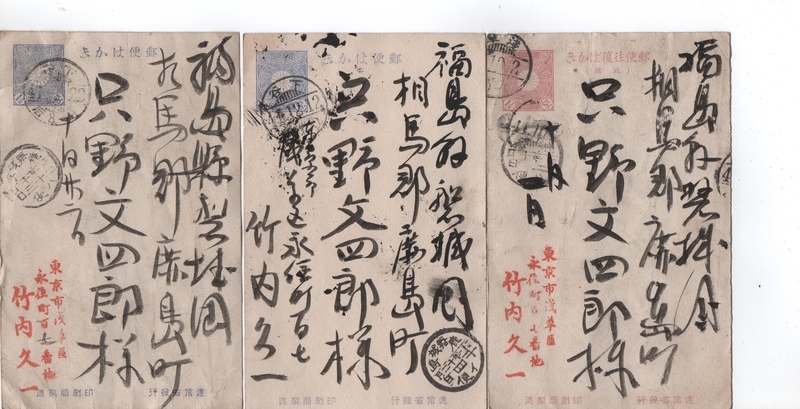 郵便はかき
福島縣磐城國
相馬郡鹿島町
只野文四郎様
十月廿二日
東京市浅草區
永住町百七番地
竹内久一
逓信省發行
印刷局製造
郵便はかき
福島縣磐城國
相馬郡鹿島町
只野文四郎様
永住町百七
竹内久一
逓信省發行
印刷局製造
郵便往復はかき
福島縣磐城國
相馬郡鹿島町
只野文四郎様
十月一日
東京市浅草區
永住町百七番地
竹内久一
逓信省發行
印刷局製造